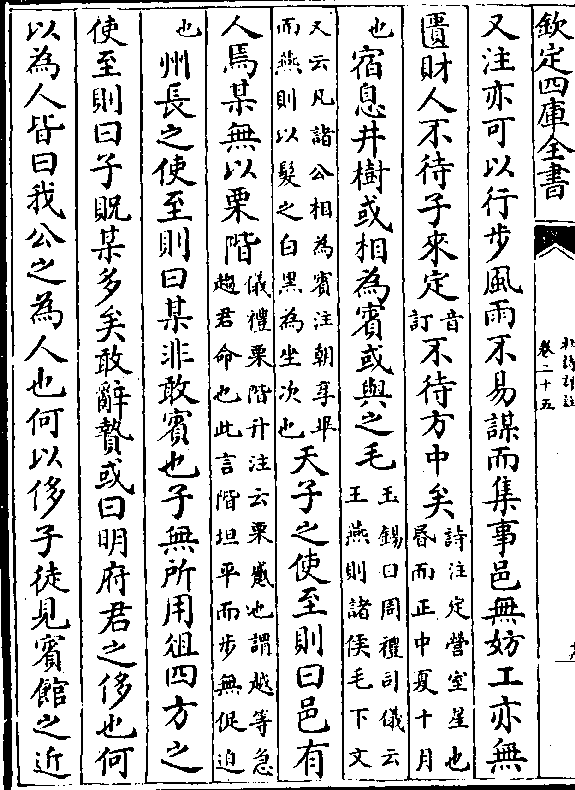 欽定四庫全書
詩詳註
卷二十五
又注亦可以行步風雨不易謀而集事邑無妨工亦無
匱財人不待子來定音訂不待方中矣詩注定營室星也昬而正中夏十月
也宿息井樹或相為賓或與之毛玉錫曰周禮司儀云王燕則諸侯毛下文
又云凡諸公相為賓注朝享畢而燕則以髮之白黒為坐次也天子之使至則曰邑有
人焉某無以栗階儀禮栗階升注云栗蹙也謂越等急趨君命也此言階坦平而步無促迫
也州長之使至則曰某非敢賓也子無所用俎四方之
使至則曰子貺某多矣敢辭贄或曰明府君之侈也何
以為人皆曰我公之為人也何以侈子徒見賓館之近